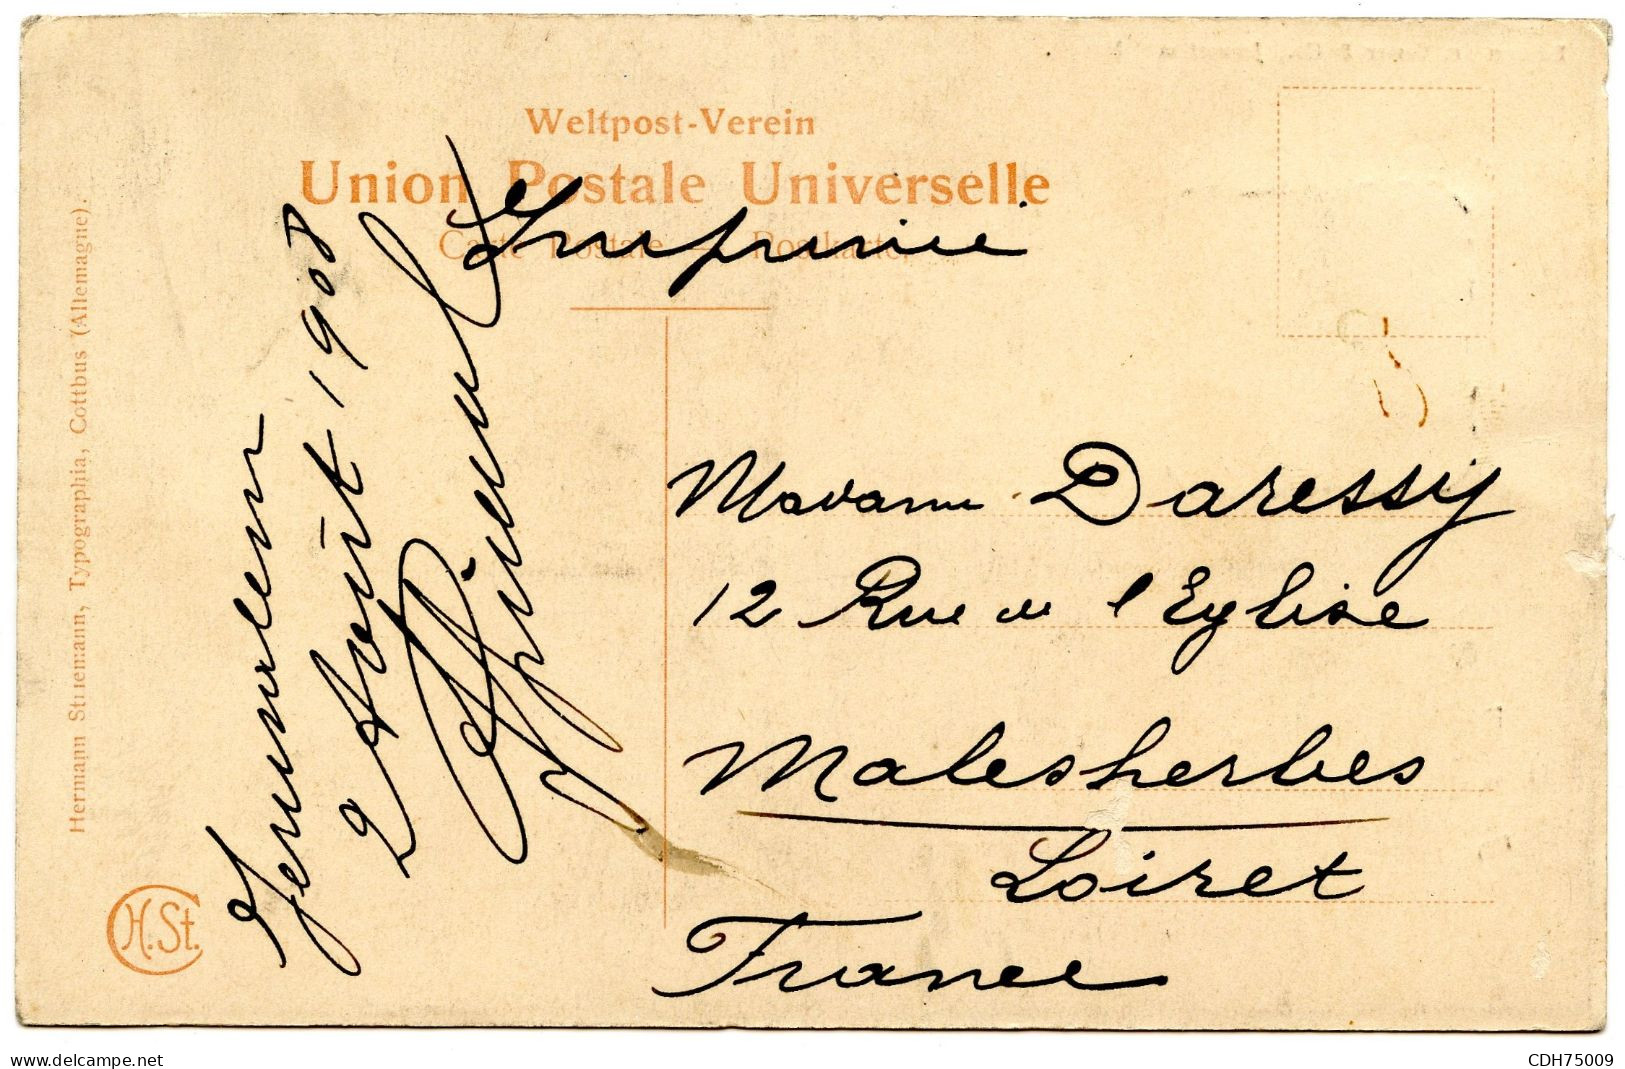 Weltpost-Verein
Union Postale Universelle
Carte Postale — Postkarte.
Imprimée
Jerusalem
2 Août 1908
Madame Daressy
12 Rue de l'Eglise
Malesherbes
Loiret
France
Hermann Striemann, Typographia, Cottbus (Allemagne).
H.St.
www.delcampe.net
CDH75009